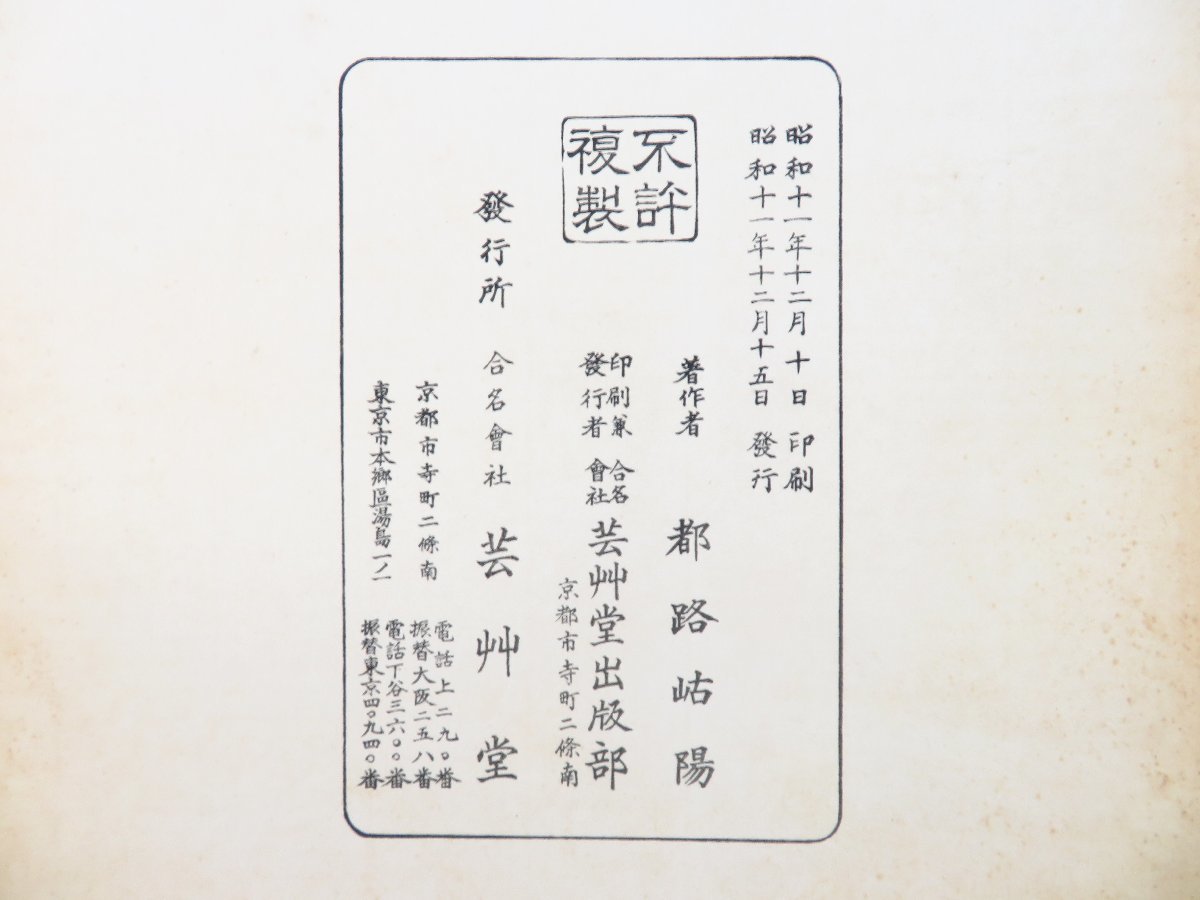 昭和十一年十二月十日 印刷
昭和十一年十二月十五日 發行
不許
複製
著作者 都路岵陽
印刷兼
發行者
合名
會社
芸艸堂出版部
京都市寺町二條南
發行所 合名會社 芸艸堂
京都市寺町二條南
電話上二九〇番
振替大阪二五八番
東京市本鄉區湯島一ノ一
電話下谷三六〇〇番
振替東京四〇九四〇番